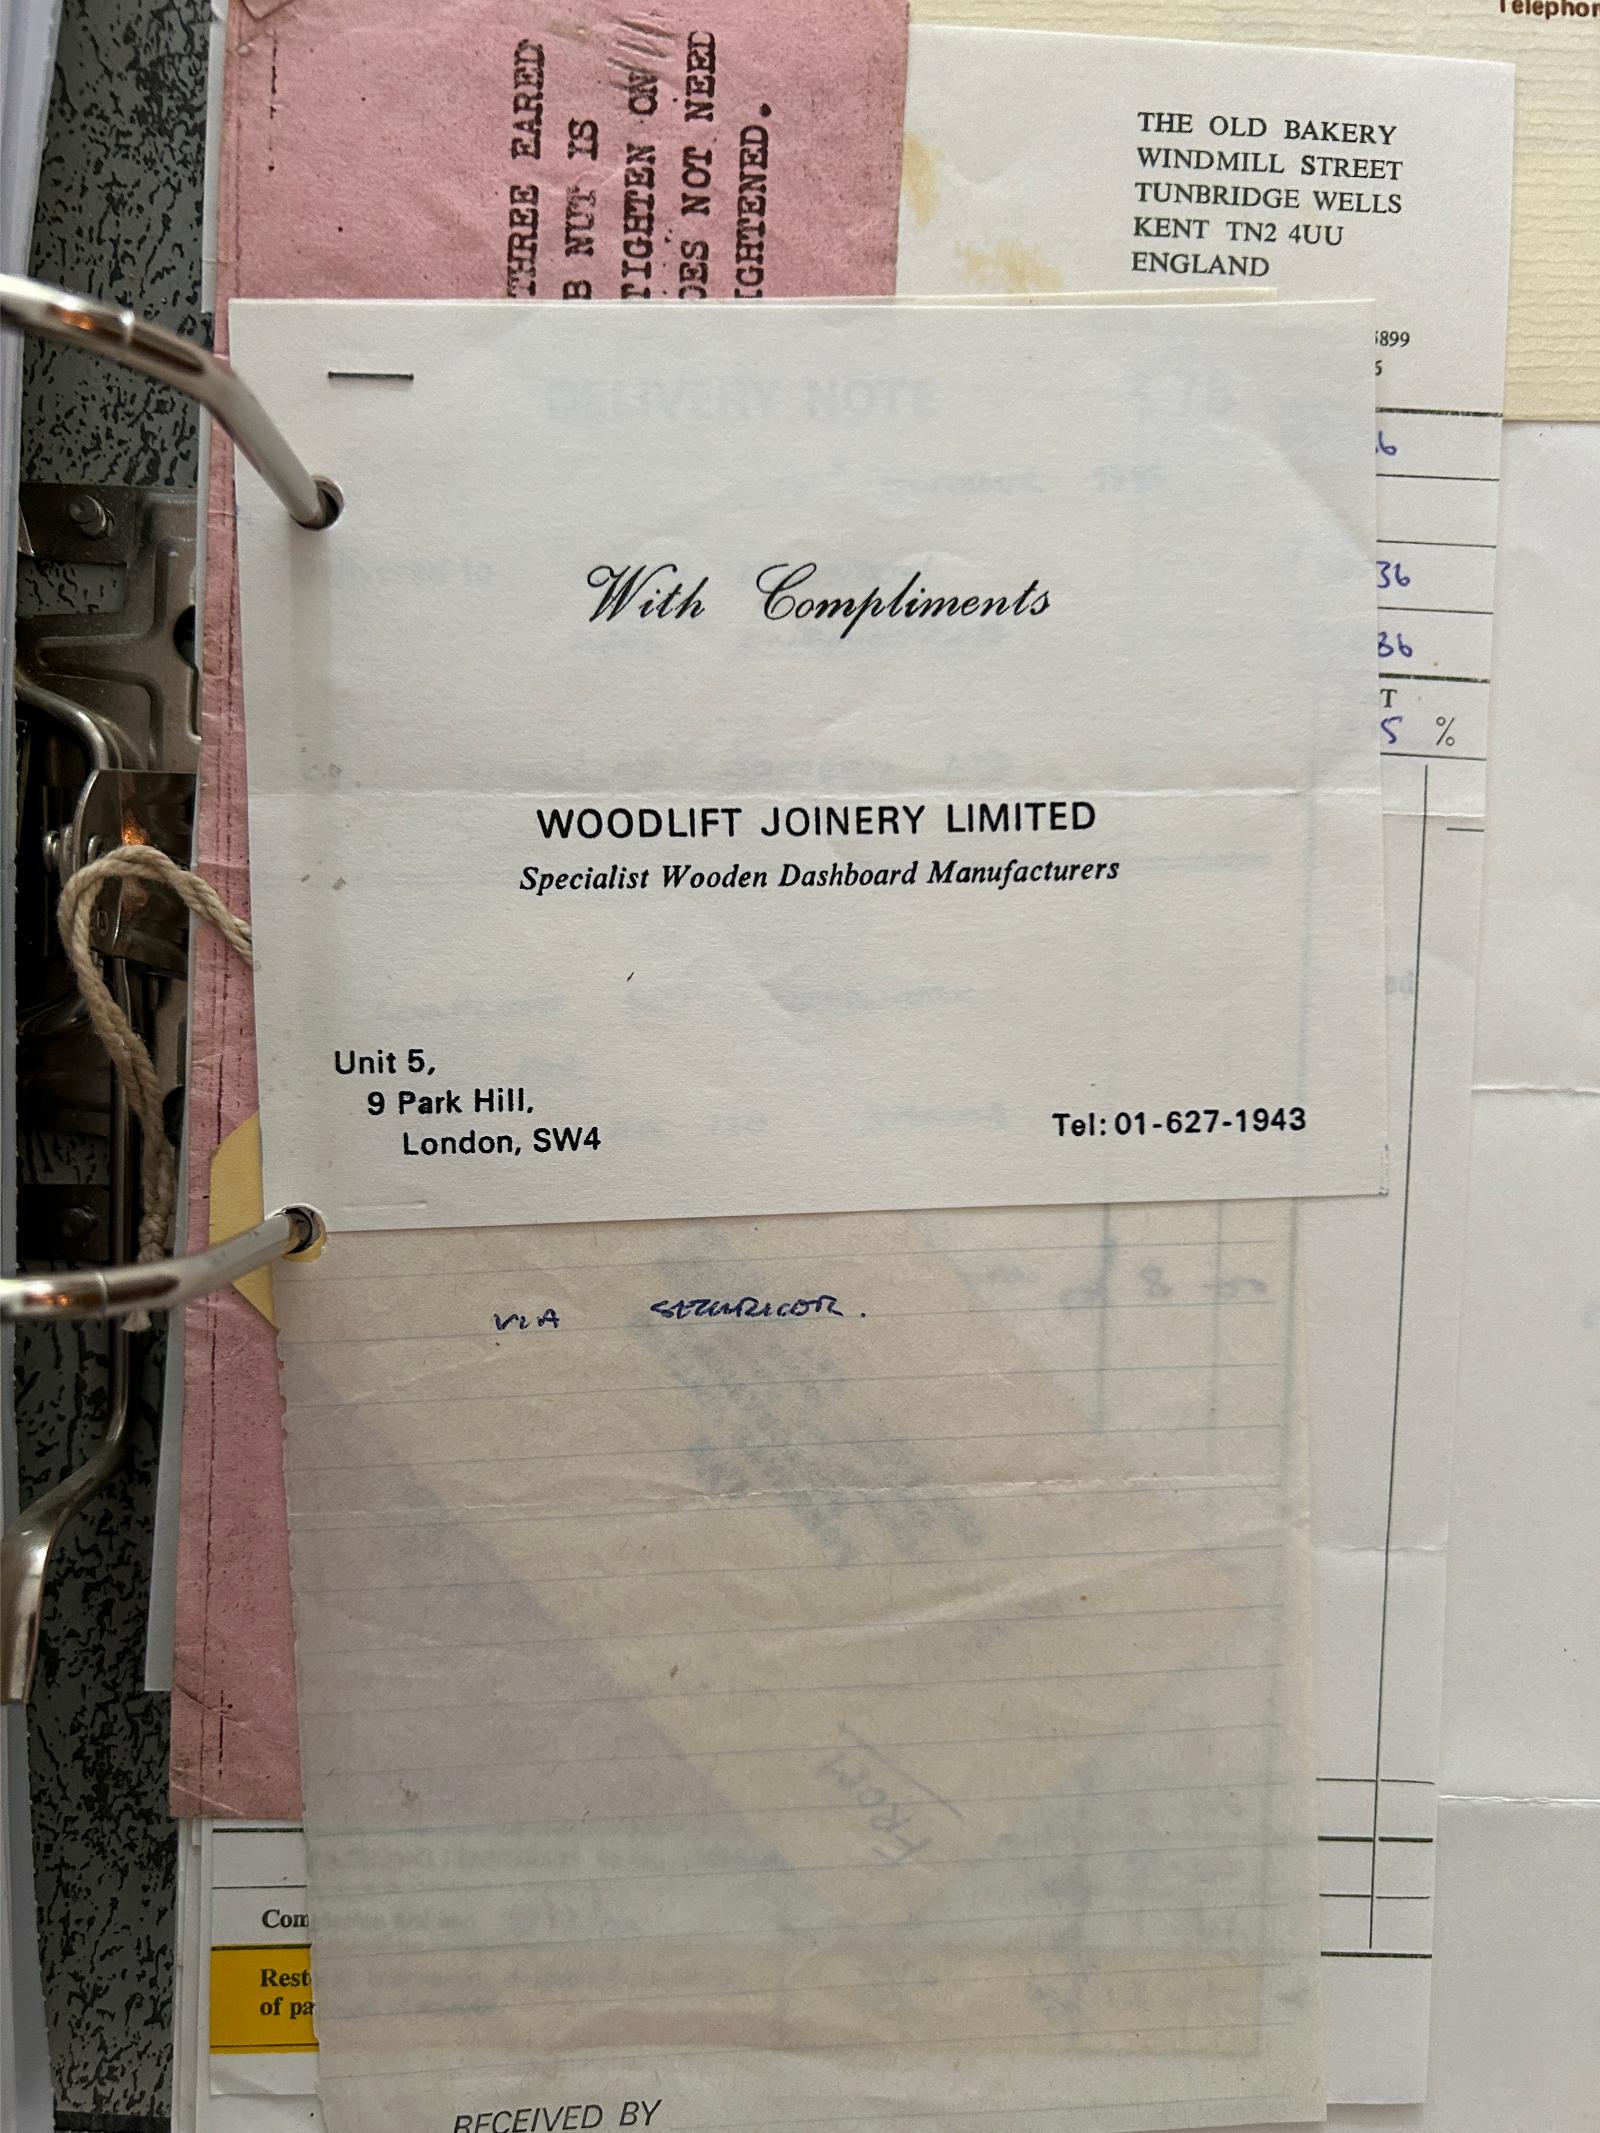 Telephon
THREE EARED
B NUT IS
TIGHTEN ON
DOES NOT NEED
IGHTENED.
THE OLD BAKERY
WINDMILL STREET
TUNBRIDGE WELLS
KENT TN2 4UU
ENGLAND
5899
6
With Compliments
36
36
T
5 %
WOODLIFT JOINERY LIMITED
Specialist Wooden Dashboard Manufacturers
Unit 5,
9 Park Hill,
London, SW4
Tel: 01-627-1943
VIA SECURICOR.
FROM
Com
Rest
of pa
RECEIVED BY